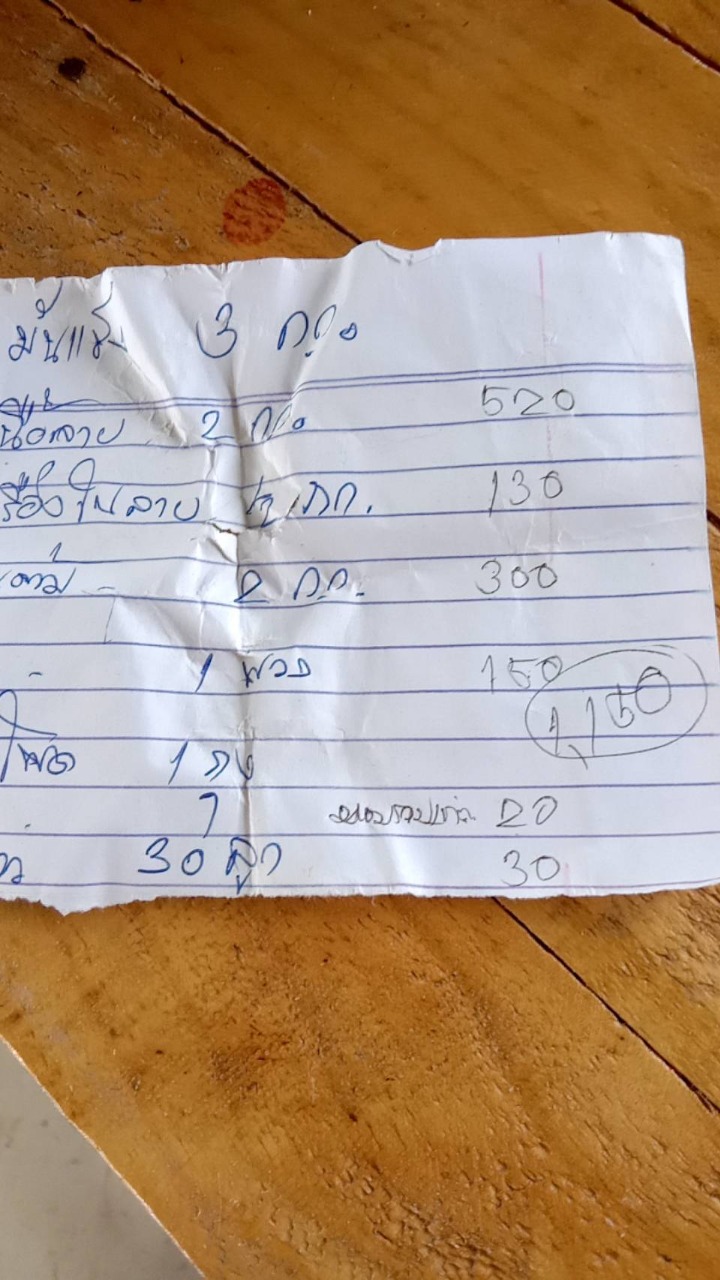 มันแข็ง 3 กก.
เนื้อลาย 2 กก. 520
เครื่องในลาย ½ กก. 130
2 กก. 300
1 พวง 150
1,150
1 ถุง
1 20
30 ลูก 30